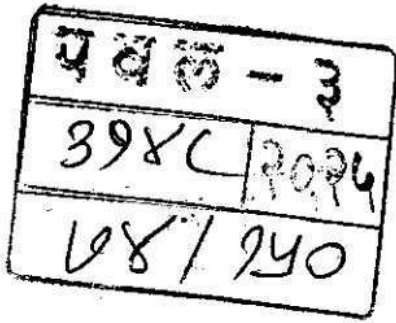 प व ल - ३
३१४८ २०२५
७४ / १५०